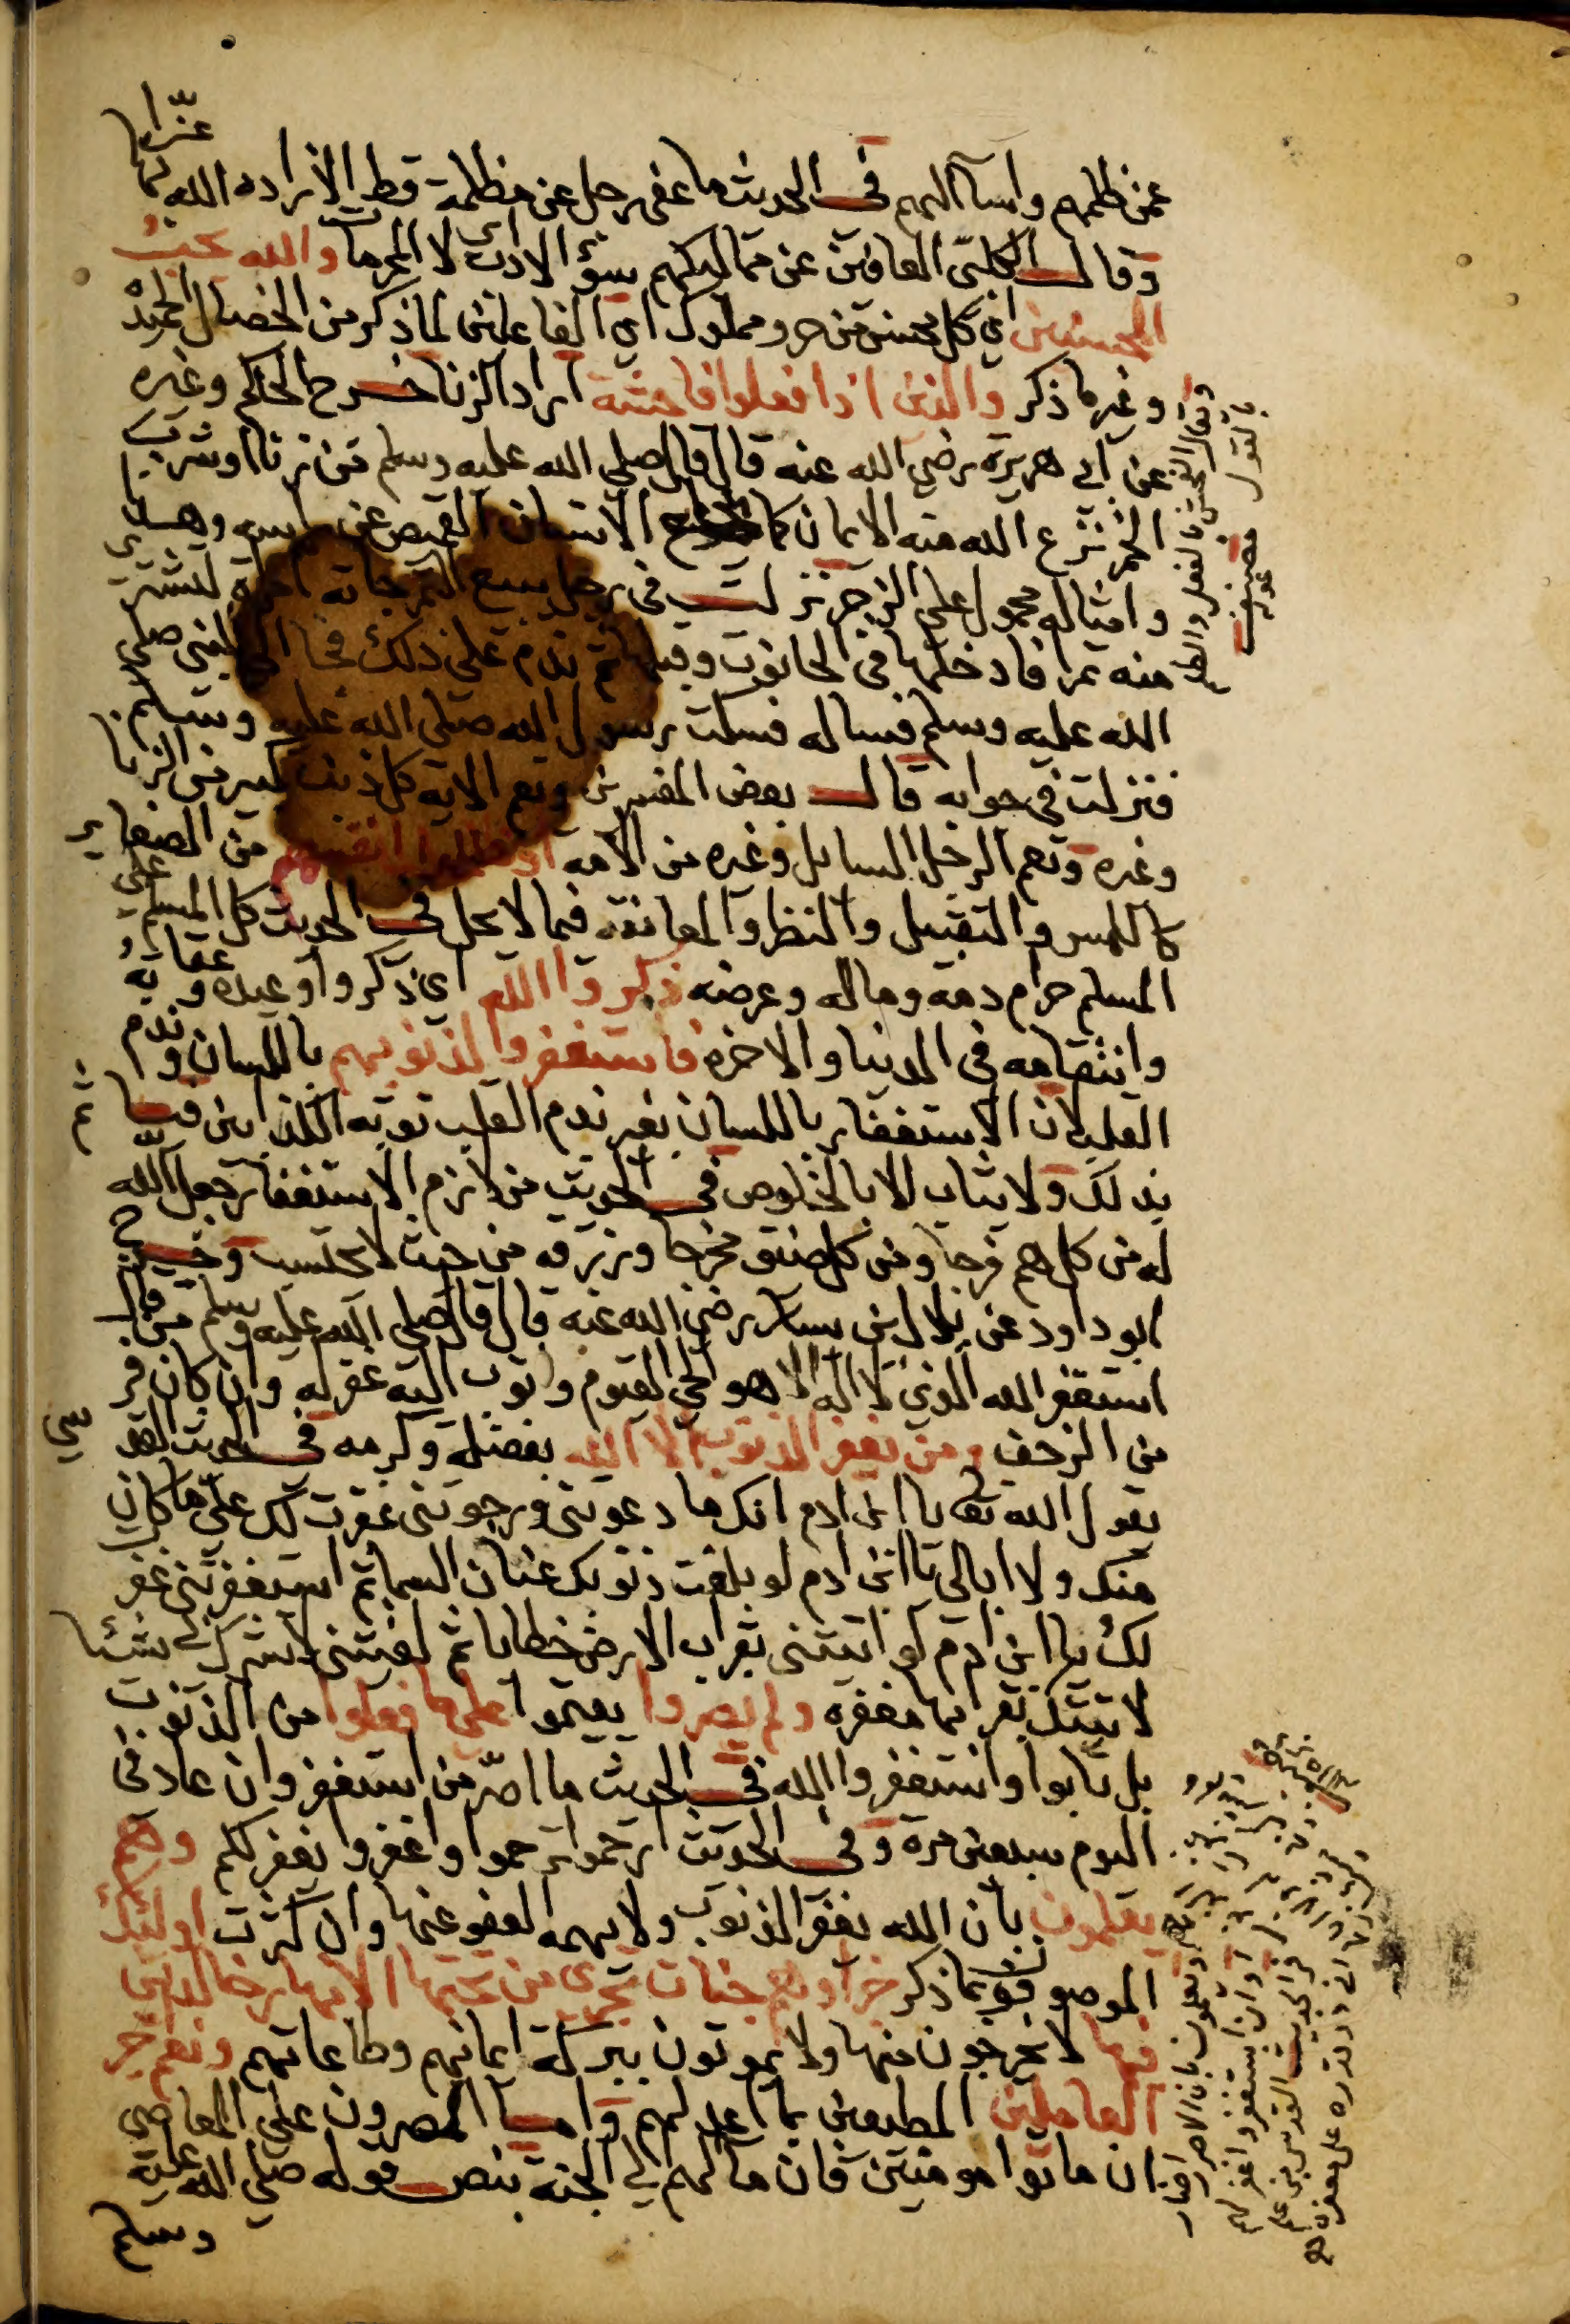 عمن ظلمهم واسآ اليهم في الحديث ما عفى رجل عن مظلمة قط الا زاده الله بها عزا
وقال الكلبى العافين عن مماليكهم سوء الادب اى لا المحرمات والله يحب
المحسنين اي كل محسن من حر ومملوك اي الفاعلين لما ذكر من الخصال الحميدة
وغير ما ذكر والذين اذا فعلوا فاحشة اراد الزنا خرج الحاكم وغيره
عن ابي هريرة رضي الله عنه قال قال صلى الله عليه وسلم من زنا او شرب
الخمر نزع الله منه الايمان كما يخلع الانسان القميص عن راسه وهذا
وامثاله محمول على الزجر نزلت في رجل يبيع التمر جاته امراة لتشترى
منه تمرا فادخلها في الحانوت وقبلها ثم ندم على ذلك فجا الى النبى صلى
الله عليه وسلم فساله فسكت رسول الله صلى الله عليه وسلم
فنزلت في جوابه قال بعض المفسرين وتعم الاية كل ذنب كبير من الزنا
وغيره وتعم الرجل السايل وغيره من الامه او ظلموا انفسهم من الصغاير
كاللمس والتقبيل والنظر والمعانقه فيما لا يحل في الحديث كل المسلم على
المسلم حرام دمه وماله وعرضه ذكروا الله اي ذكروا وعيده وعقابه
وانتقامه في الدنيا والاخره فاستغفروا لذنوبهم باللسان وندم
القلب لان الاستغفار باللسان بغير ندم القلب توبه الكذابين فياثم
بذلك ولا يثاب الا بالخلوص في الحديث من لازم الاستغفار جعل الله
له من كل هم فرجا ومن كل ضيق مخرجا ورزقه من حيث لا يحتسب وخرج
ابو داود عن بلال بن يسار رضي الله عنه قال قال صلى الله عليه وسلم من قال
استغفر الله الذي لا اله الا هو الحي القيوم واتوب اليه غفر له وان كان فر
من الزحف ومن يغفر الذنوب الا الله بفضله وكرمه في الحديث القدسي
يقول الله تعالى يا ابن ادم انك ما دعوتنى ورجوتنى غفرت لك على ما كان
منك ولا ابالي يا ابن ادم لو بلغت ذنوبك عنان السما ثم استغفرتنى غفرت
لك يا ابن ادم لو اتيتنى بقراب الارض خطايا ثم لقيتنى لا تشرك بي شيئا
لاتيتك بقرابها مغفره ولم يصروا يقيموا على ما فعلوا من الذنوب
بل تابوا واستغفروا الله في الحديث ما اصر من استغفر وان عاد فى
اليوم سبعين مرة وفي الحديث ارحموا ترحموا واغفروا يغفر لكم وهم
يعلمون بان الله يغفر الذنوب ولا يهمه العفو عنها وان كثرت اولئك
الموصوفون بما ذكر جزاوهم جنات تجرى من تحتها الانهار خالدين
فيها لا يخرجون منها ولا يموتون ببركة ايمانهم وطاعاتهم ونعم اجر
العاملين المطيعين بما اعد لهم واما المصرون على المعاصي
ان ماتوا مومنين فان مآلهم الي الجنة بنص قوله صلى الله عليه
وسلم